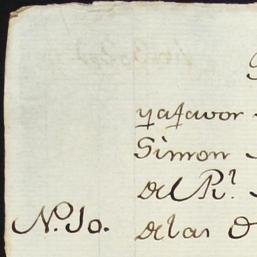 y a favor
Simon
del Rl.
No. 10. de las